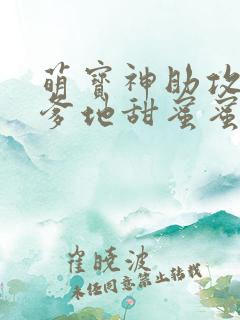 萌宝神助攻
爹地甜蜜蜜
崔晓波
未经同意禁止转载